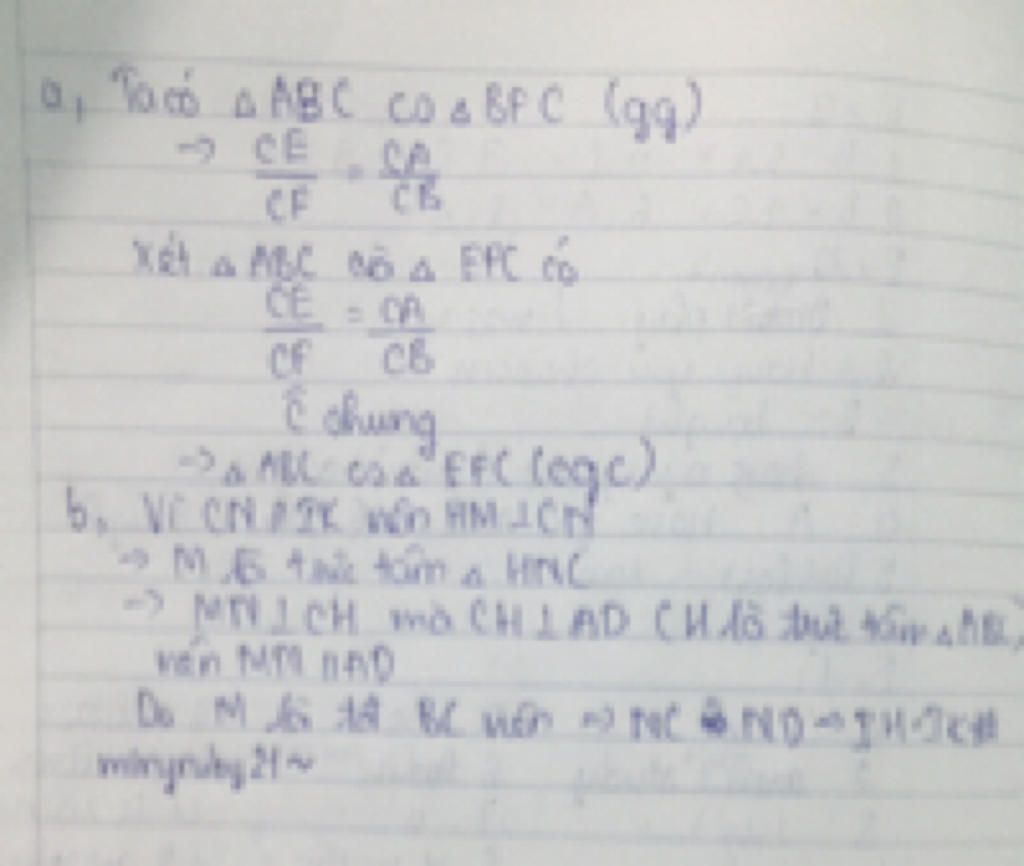 a, Ta có △ ABC co △ BFC (gg)
→ CE/CF = CA/CB
Xét △ ABC và △ EFC có
CE/CF = CA/CB
Ĉ chung
→ △ ABC co △ EFC (cgc)
b, Vì CN // IK nên HM ⊥ CN
→ M là trực tâm △ HNC
→ MN ⊥ CH mà CH ⊥ AD (H là trực tâm △ ABC)
nên MN // AD
Do M là tđ BC nên → NC = ND → IH = IK
minyruby21~